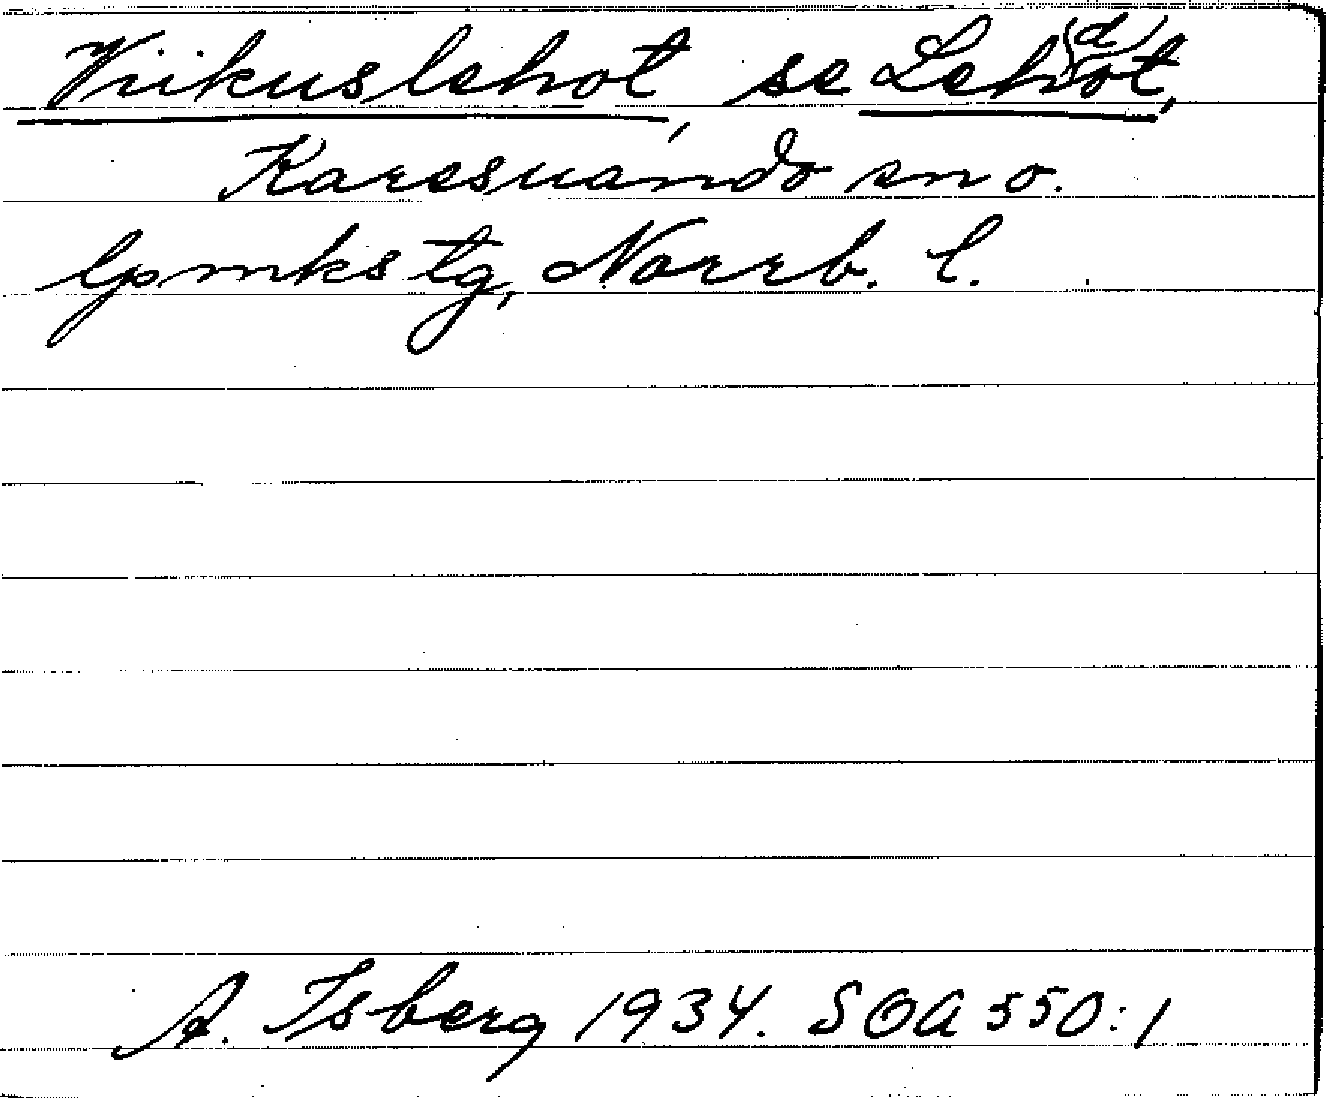 Viikuslehot, se Leh(d)ot,
Karesuando sn o.
lpmks tg, Norrb. l.
A. Isberg 1934. SOA 550:1